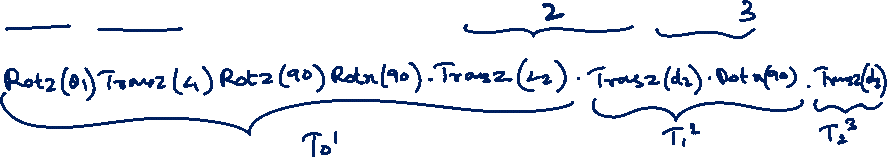 2 3
Rotz(θ₁) Transz(L₁) Rotz(90) Rotx(90) . Transz(L₂) . Transz(d₂) . Rotx(90) . Transz(d₃)
T₀¹ T₁² T₂³